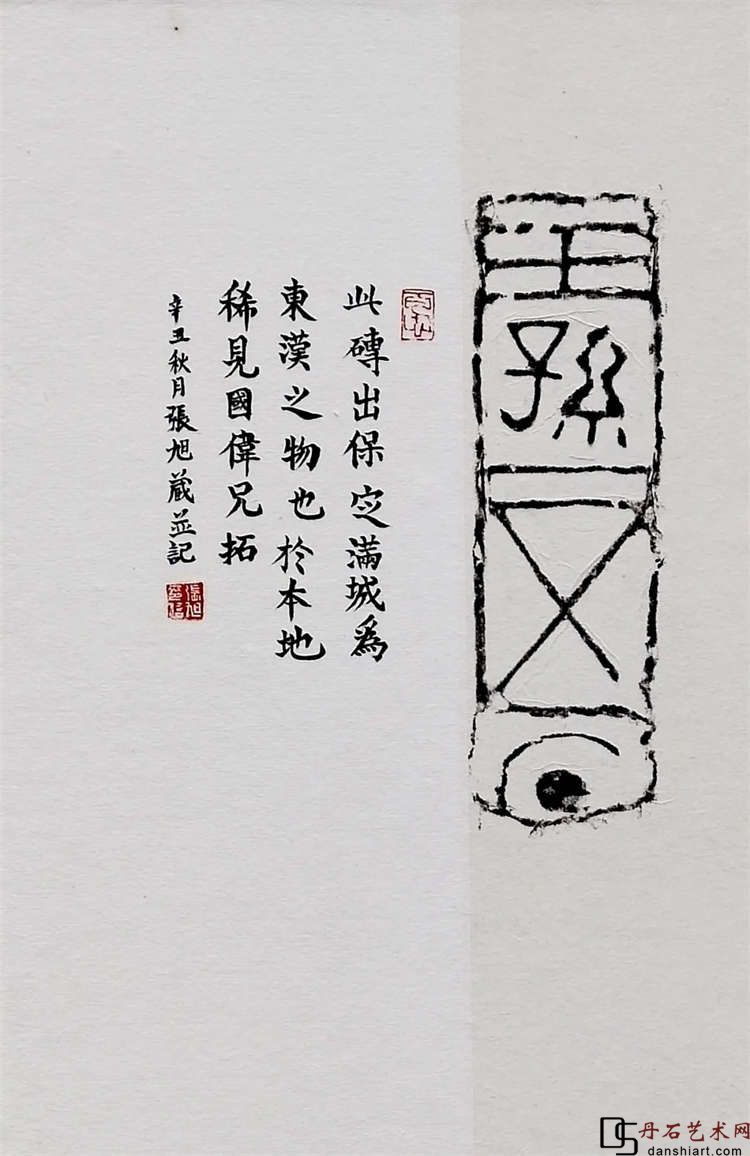 王孫
此磚出保定滿城為
東漢之物也於本地
稀見國偉兄拓
辛丑秋月張旭藏並記
張旭
丹石艺术网
danshiart.com